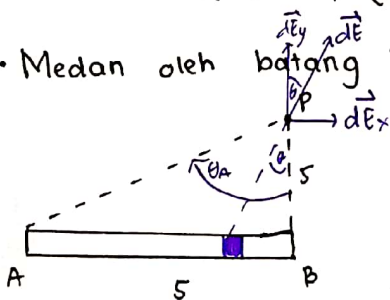 • Medan oleh batang
dEy
dE
θ
P
dEx
θA
θ
5
A
5
B